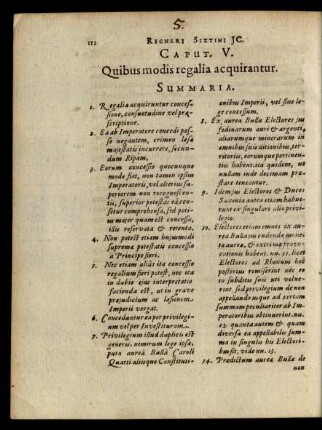 5.
112 REGNERI SIXTINI JC.
CAPUT. V.
Quibus modis regalia acquirantur.
SUMMARIA.
1. Regalia acquiruntur concessione, consuetudine vel præscriptione.
2. Ea ab Imperatore concedi posse negantem, crimen læsæ majestatis incurrere, secundum Ripam.
3. Eorum concessio quocunque modo fiat, non tamen ipsius Imperatoris, vel alterius superiorem non recognoscentis, superior potestas censetur comprehensa, sed potius major quam est concessa, illis reservata & retenta.
4. Non potest etiam hujusmodi suprema potestatis concessio à Principe fieri.
5. Nec etiam alia ita concessio regalium fieri potest, nec ita in dubio ejus interpretatio facienda est, ut in grave præjudicium ac læsionem Imperii vergat.
6. Conceduntur ea per privilegium vel per Investituram.
7. Privilegium istud duplex est generis, nimirum lege
puta aurea Bulla Caroli Quarti aliisque Constituti-
onibus Imperii, vel sine lege concessum.
8. Ex aurea Bulla Electores jus fodinarum auri & argenti, aliarumque minerarum in omnibus suis ditionibus, territoriis, eorumque pertinentiis habent, ita quidem, ut nullam inde decimam præstare teneantur.
9. Idemque Electores & Duces Saxoniæ antea etiam habuerunt ex singulari alio privilegio.
10. Electores etiam omnes ex aurea Bulla jus cudendæ monetæ aureæ, & extra provocationis habent. nu. 11. licet Electores ad Rhenum hoc posterius remiserint nec eo in subditis suis uti voluerint, sed privilegium de non appellando usque ad certam summam peculiariter ab Imperatoribus obtinuerint, nu. 12 quanta autem & quam diversa ea appellabilis summa in singulis his Electoribus sit, vide nu. 13.
14. Prædictum aurea Bulla de
non